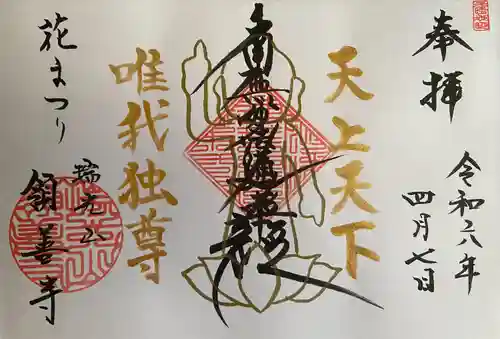 奉拝
令和六年
四月七日
天上天下
南無釈迦牟尼佛
唯我独尊
花まつり
瑞光山
領善寺